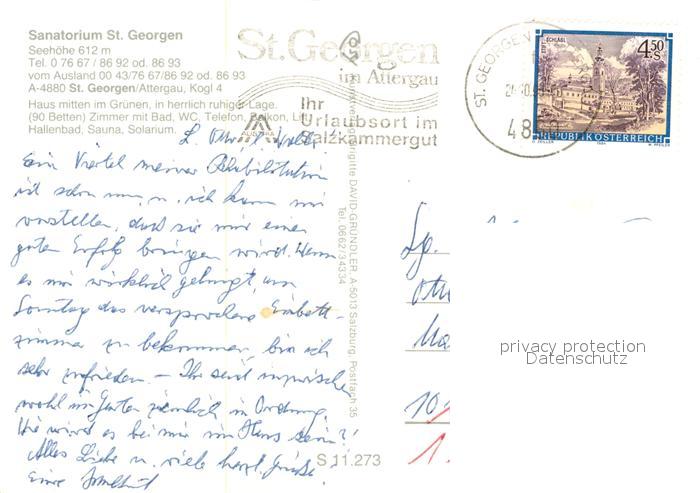 Sanatorium St. Georgen
Seehöhe 612 m
Tel. 0 76 67 / 86 92 od. 86 93
vom Ausland 00 43/76 67/86 92 od. 86 93
A-4880 St. Georgen/Attergau, Kogl 4
Haus mitten im Grünen, in herrlich ruhiger Lage.
(90 Betten) Zimmer mit Bad, WC, Telefon, Balkon,
Hallenbad, Sauna, Solarium.
St. Georgen
im Attergau
Ihr
Urlaubsort im
Salzkammergut
ST. GEORGEN
48
STIFT SCHLÄGL
4.50
S
REPUBLIK ÖSTERREICH
Brigitte DAVID-GRÜNDLER, A-5013 Salzburg, Postfach 35
Tel. 0662/34334
L.
Ein Viertel meiner Rehabilitation
ist schon um, u. ich kann mir
vorstellen, daß sie mir einen
guten Erfolg bringen wird. Wenn
es mir wirklich gelingt, am
Sonntag das versprochene Einbett-
zimmer zu bekommen, bin ich
sehr zufrieden – Ihr seid inzwischen
wohl im Garten ziemlich in Ordnung.
Wie wird es bei mir im Haus sein?!
Alles Liebe u. viele herzl. Grüße
Eure
S 11.273
10
1.
privacy protection
Datenschutz